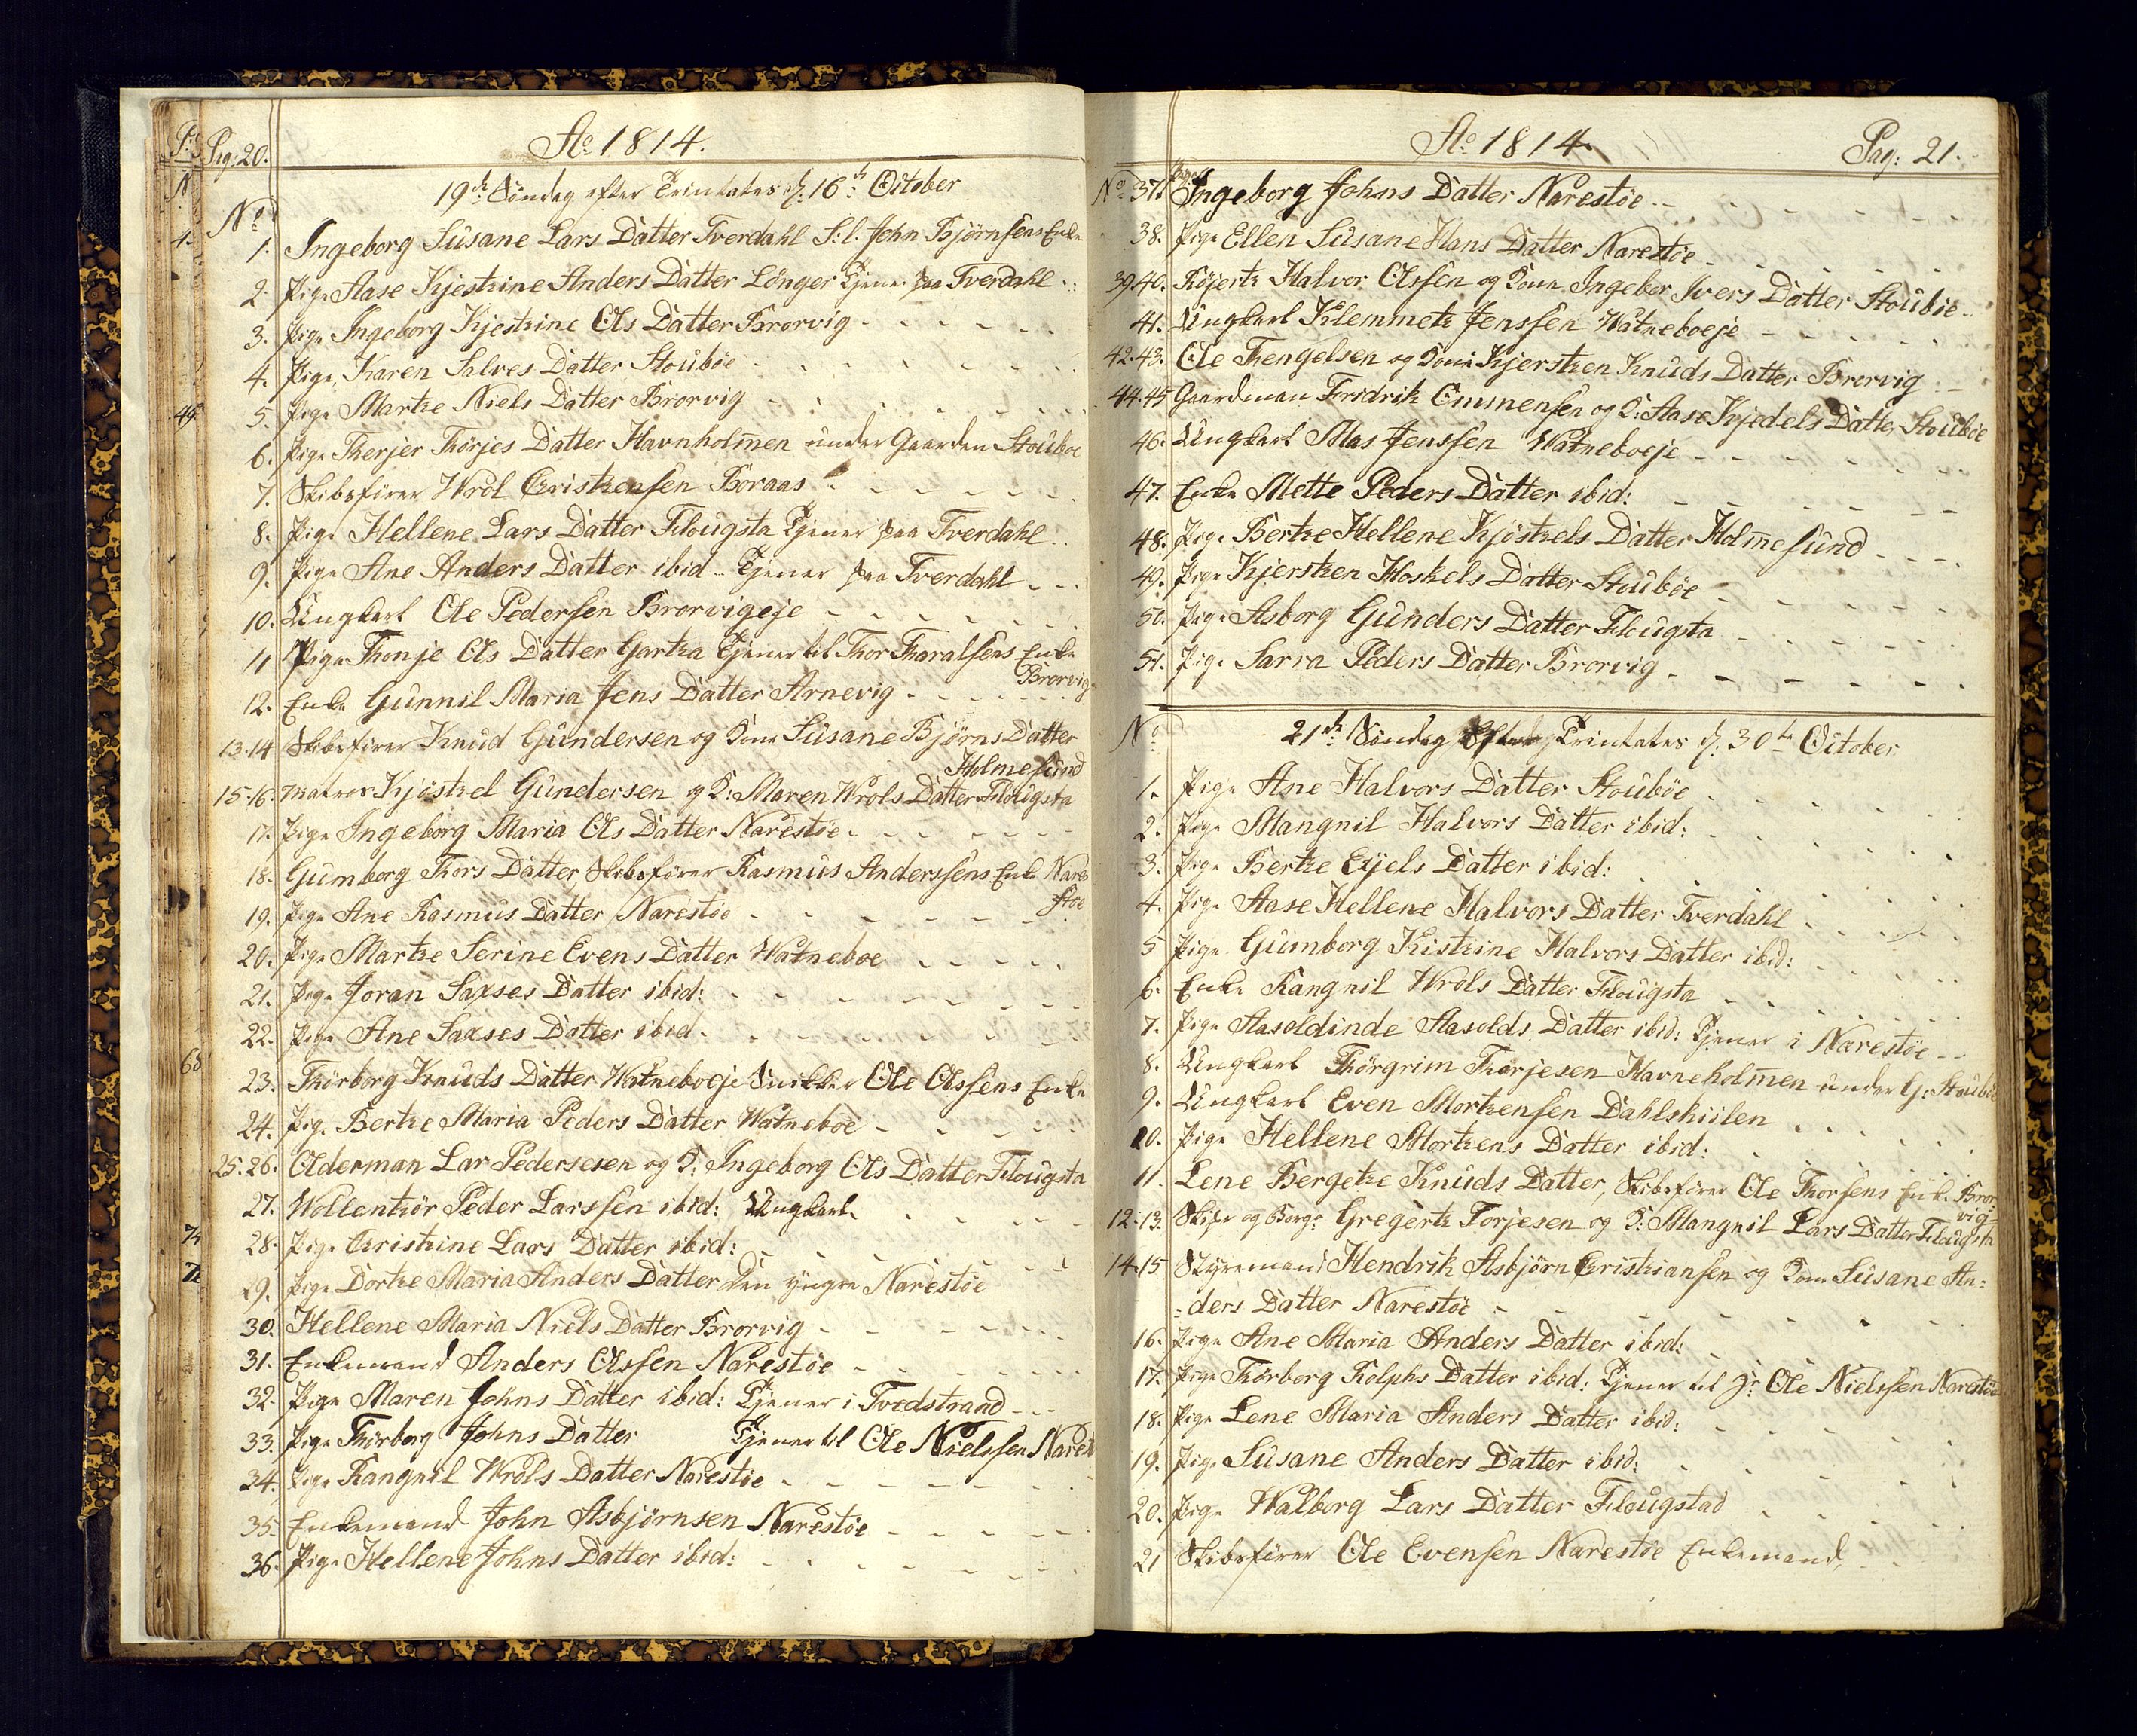 Pag: 20.
Ao 1814.
19de Söndag efter Trinitatis d: 16de October
No
1. Ingeborg Susane Lars Datter Tverdahl S:l. John Bjørnsens Enke
2. Pige Aase Kjestrine Anders Datter Lönger Tjener paa Tverdahl
3. Pige Ingeborg Kjestrine Ols Datter Brorvig
4. Pige Karen Salves Datter Stouböe
5. Pige Marthe Niels Datter Brorvig
6. Pige Therjer Thörjes Datter Havnholmen under Gaarden Stouboe
7. Skibsfører Wrol Cristensen Boraas
8. Pige Hellene Lars Datter Flougsta Tjener paa Tverdahl
9. Pige Ane Anders Datter ibid Tjener paa Tverdahl
10. Ungkarl Ole Pedersen Brorvigeje
11 Pige Thonje Ols Datter Gartha Tjener til Thor Tharalsens Enke
Brorvig
12. Enke Gunnil Maria Jens Datter Arnevig
13.14 Skibsfører Knud Gundersen og Kone Susane Bjørns Datter
Holmesund
15.16. Matros Kjöstel Gundersen og K: Maren Wrols Datter Flougsta
17. Pige Ingeborg Maria Ols Datter Narestöe
18. Gumborg Thors Datter, Skibsfører Rasmus Anderssens Enke Nare
stöe
19. Pige Ane Rasmus Datter Narestöe
20. Pige Marthe Serine Evens Datter Watneboe
21. Pige Joran Saxses Datter ibid:
22. Pige Ane Saxses Datter ibid.
23. Thörborg Knuds Datter Watneboeje Snikker Ole Olssens Enke
24. Pige Berthe Maria Peders Datter Watneboe
25.26. Olderman Lar Pedersesen og K: Ingeborg Ols Datter Flougsta
27. Wollentör Peder Larssen ibid: Ungkarl
28. Pige Cristine Lars Datter ibid:
29. Pige Dorthe Maria Anders Datter den yngre Narestöe
30. Hellene Maria Niels Datter Brorvig
31. Enkemand Anders Olssen Narestöe
32. Pige Maren Johns Datter ibid: Tjener i Tvedstrand
33. Pige Thörborg Johns Datter Tjener til Ole Nielssen Narest
34. Pige Rangnil Wrols Datter Narestöe
35. Enkemand John Asbjørnsen Narestöe
36. Pige Hellene Johns Datter ibid:
Ao 1814.
Pag: 21.
No 37. Pige Ingeborg Johns Datter Narestöe
38. Pige Ellen Susane Hans Datter Narestöe
39.40. Röjerth Halvor Olssen og Kone Ingebor Ivers Datter Stouböe
41. Ungkarl Klemmeth Jenssen Watneboeje
42.43. Ole Thengelsen og Kone Kjersten Knuds Datter Brorvig
44.45 Gaardman Fridrik Ommensen og K: Aase Kjedels Datter Stouböe
46. Ungkarl Mas Jenssen Watneboeje
47. Enke Mette Peders Datter ibid:
48. Pige Berthe Hellene Kjöstels Datter Holmesund
49. Pige Kjersten Hoskels Datter Stouböe
50. Pige Asborg Gunders Datter Flougsta
51. Pige Sarra Peders Datter Brorvig
No 21de Söndag Efter Trinitatis d: 30te October
1. Pige Ane Halvors Datter Stouböe
2. Pige Mangnil Halvors Datter ibid:
3. Pige Berthe Eyels Datter ibid:
4. Pige Aase Hellene Halvors Datter Tverdahl
5 Pige Gumborg Kistine Halvors Datter ibid:
6. Enke Rangnil Wrols Datter Flougsta
7. Pige Aasoldinde Aasolds Datter ibid: Tjener i Narestöe
8. Ungkarl Thörgrim Thorjesen Havneholmen under G: Stouböe
9. Ungkarl Even Mortensen Dahlskiilen
10. Pige Hellene Mortens Datter ibid:
11. Lene Bergethe Knuds Datter, Skibsfører Ole Thorsens Enke Bror
vig
12.13. Skips og Borg: Gregerth Torjesen og K: Mangnil Lars Datter Flougsta
14.15 Styremand Hendrik Asbjørn Cristiansen og Kone Susane An=
=ders Datter Narestöe
16. Pige Ane Maria Anders Datter ibid:
17. Pige Thörborg Rolphs Datter ibid: Tjener til Jr Ole Nielssen Narestöe
18. Pige Lene Maria Anders Datter ibid:
19. Pige Susane Anders Datter ibid:
20. Pige Walborg Lars Datter Flougstad
21 Skibsfører Ole Evensen Narestöe Enkemand